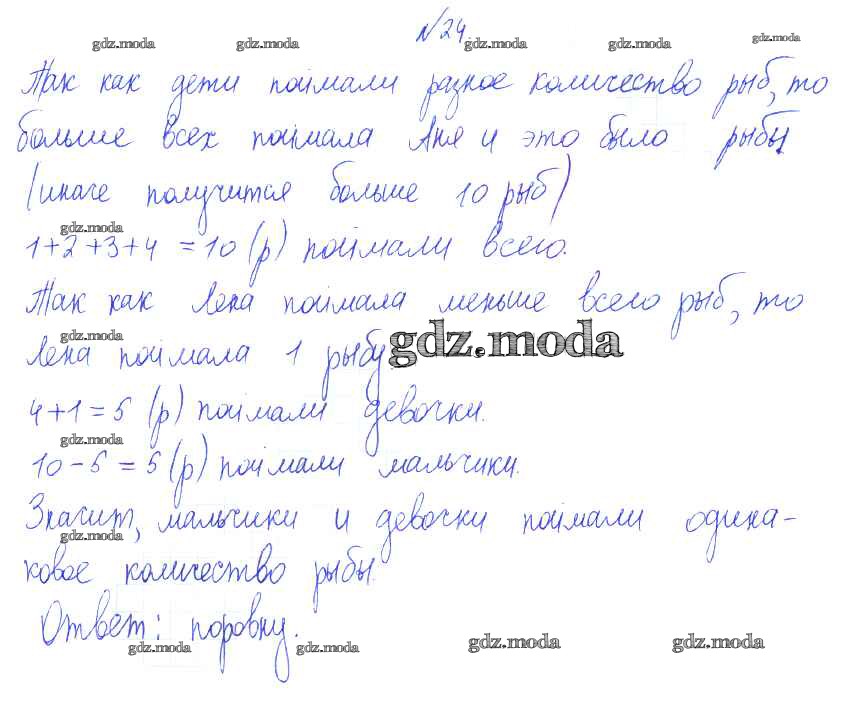 №24
gdz.moda gdz.moda gdz.moda gdz.moda gdz.moda
Так как дети поймали разное количество рыб, то
больше всех поймала Аня и это было рыбы
(иначе получится больше 10 рыб)
gdz.moda
1+2+3+4 = 10 (р) поймали всего.
Так как Лена поймала меньше всего рыб, то
gdz.moda
Лена поймала 1 рыбу.
gdz.moda
4+1=5 (р) поймали девочки.
gdz.moda
10-5=5 (р) поймали мальчики.
Значит, мальчики и девочки поймали одина-
gdz.moda
ковое количество рыбы.
Ответ: поровну.
gdz.moda gdz.moda gdz.moda gdz.moda